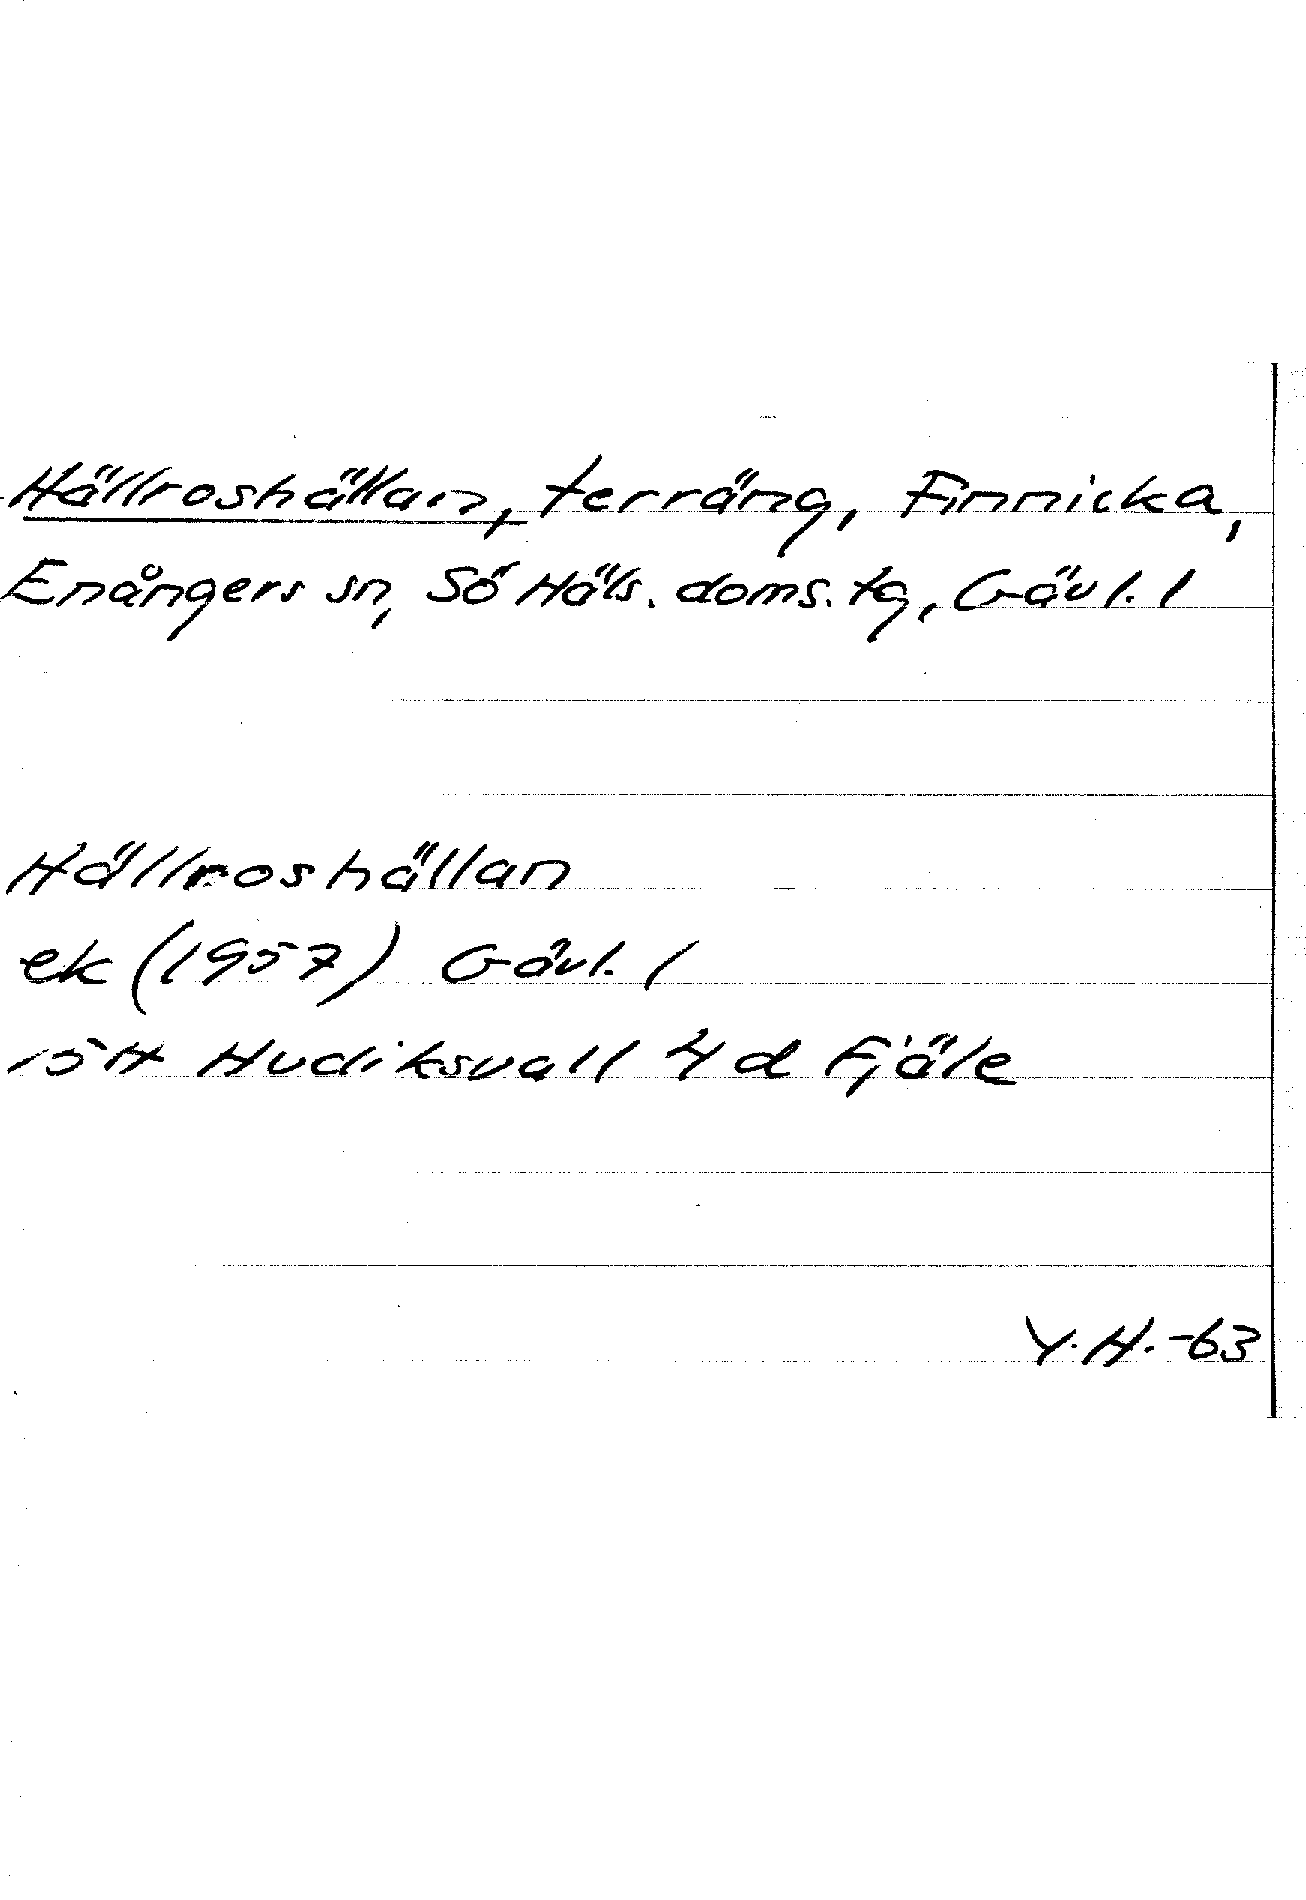 Hällroshällan, terräng, Finnicka,
Enångers sn, Sö Häls. doms. tg, Gävl. l
Hällroshällan
ek (1957) Gävl. l
15H Hudiksvall 4 d Fjäle
Y.H.-63